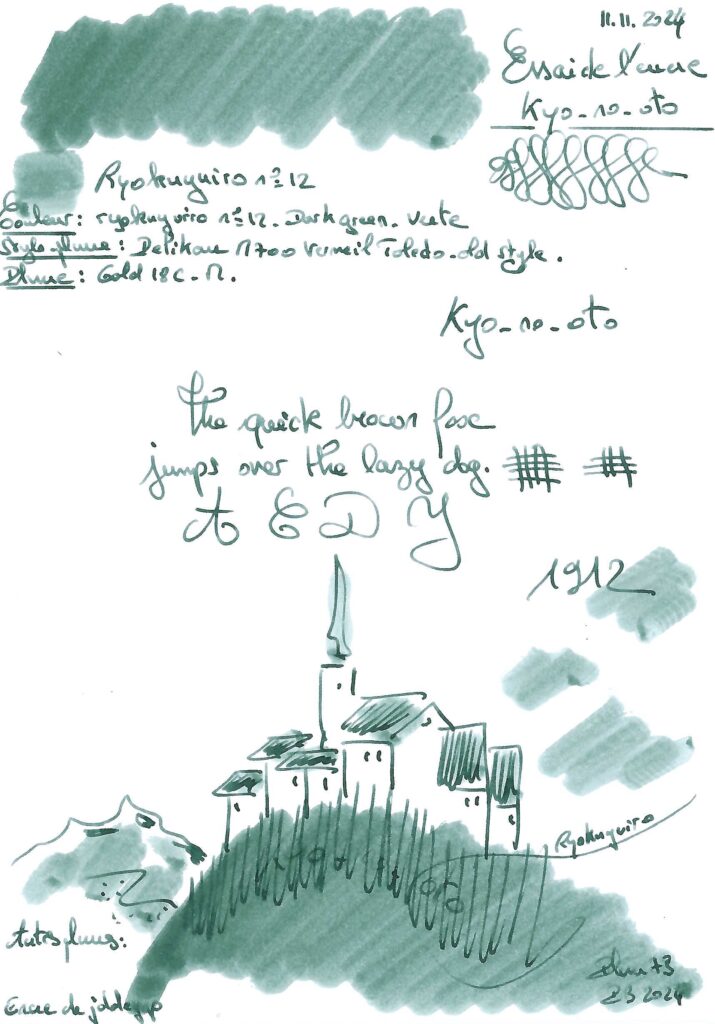 11.11.2024
Essai de l'encre
Kyo-no-oto
Ryokuyuiro n°12
Couleur: ryokuyuiro n°12. Dark green. Verte
Stylo-plume: Pelikan M700 Vermeil Toledo-old style.
Plume: Gold 18C-M.
Kyo-no-oto
The quick brown fox
jumps over the lazy dog.
A E D Y
1912
Ryokuyuiro
Autres plumes:
Encre de
2024